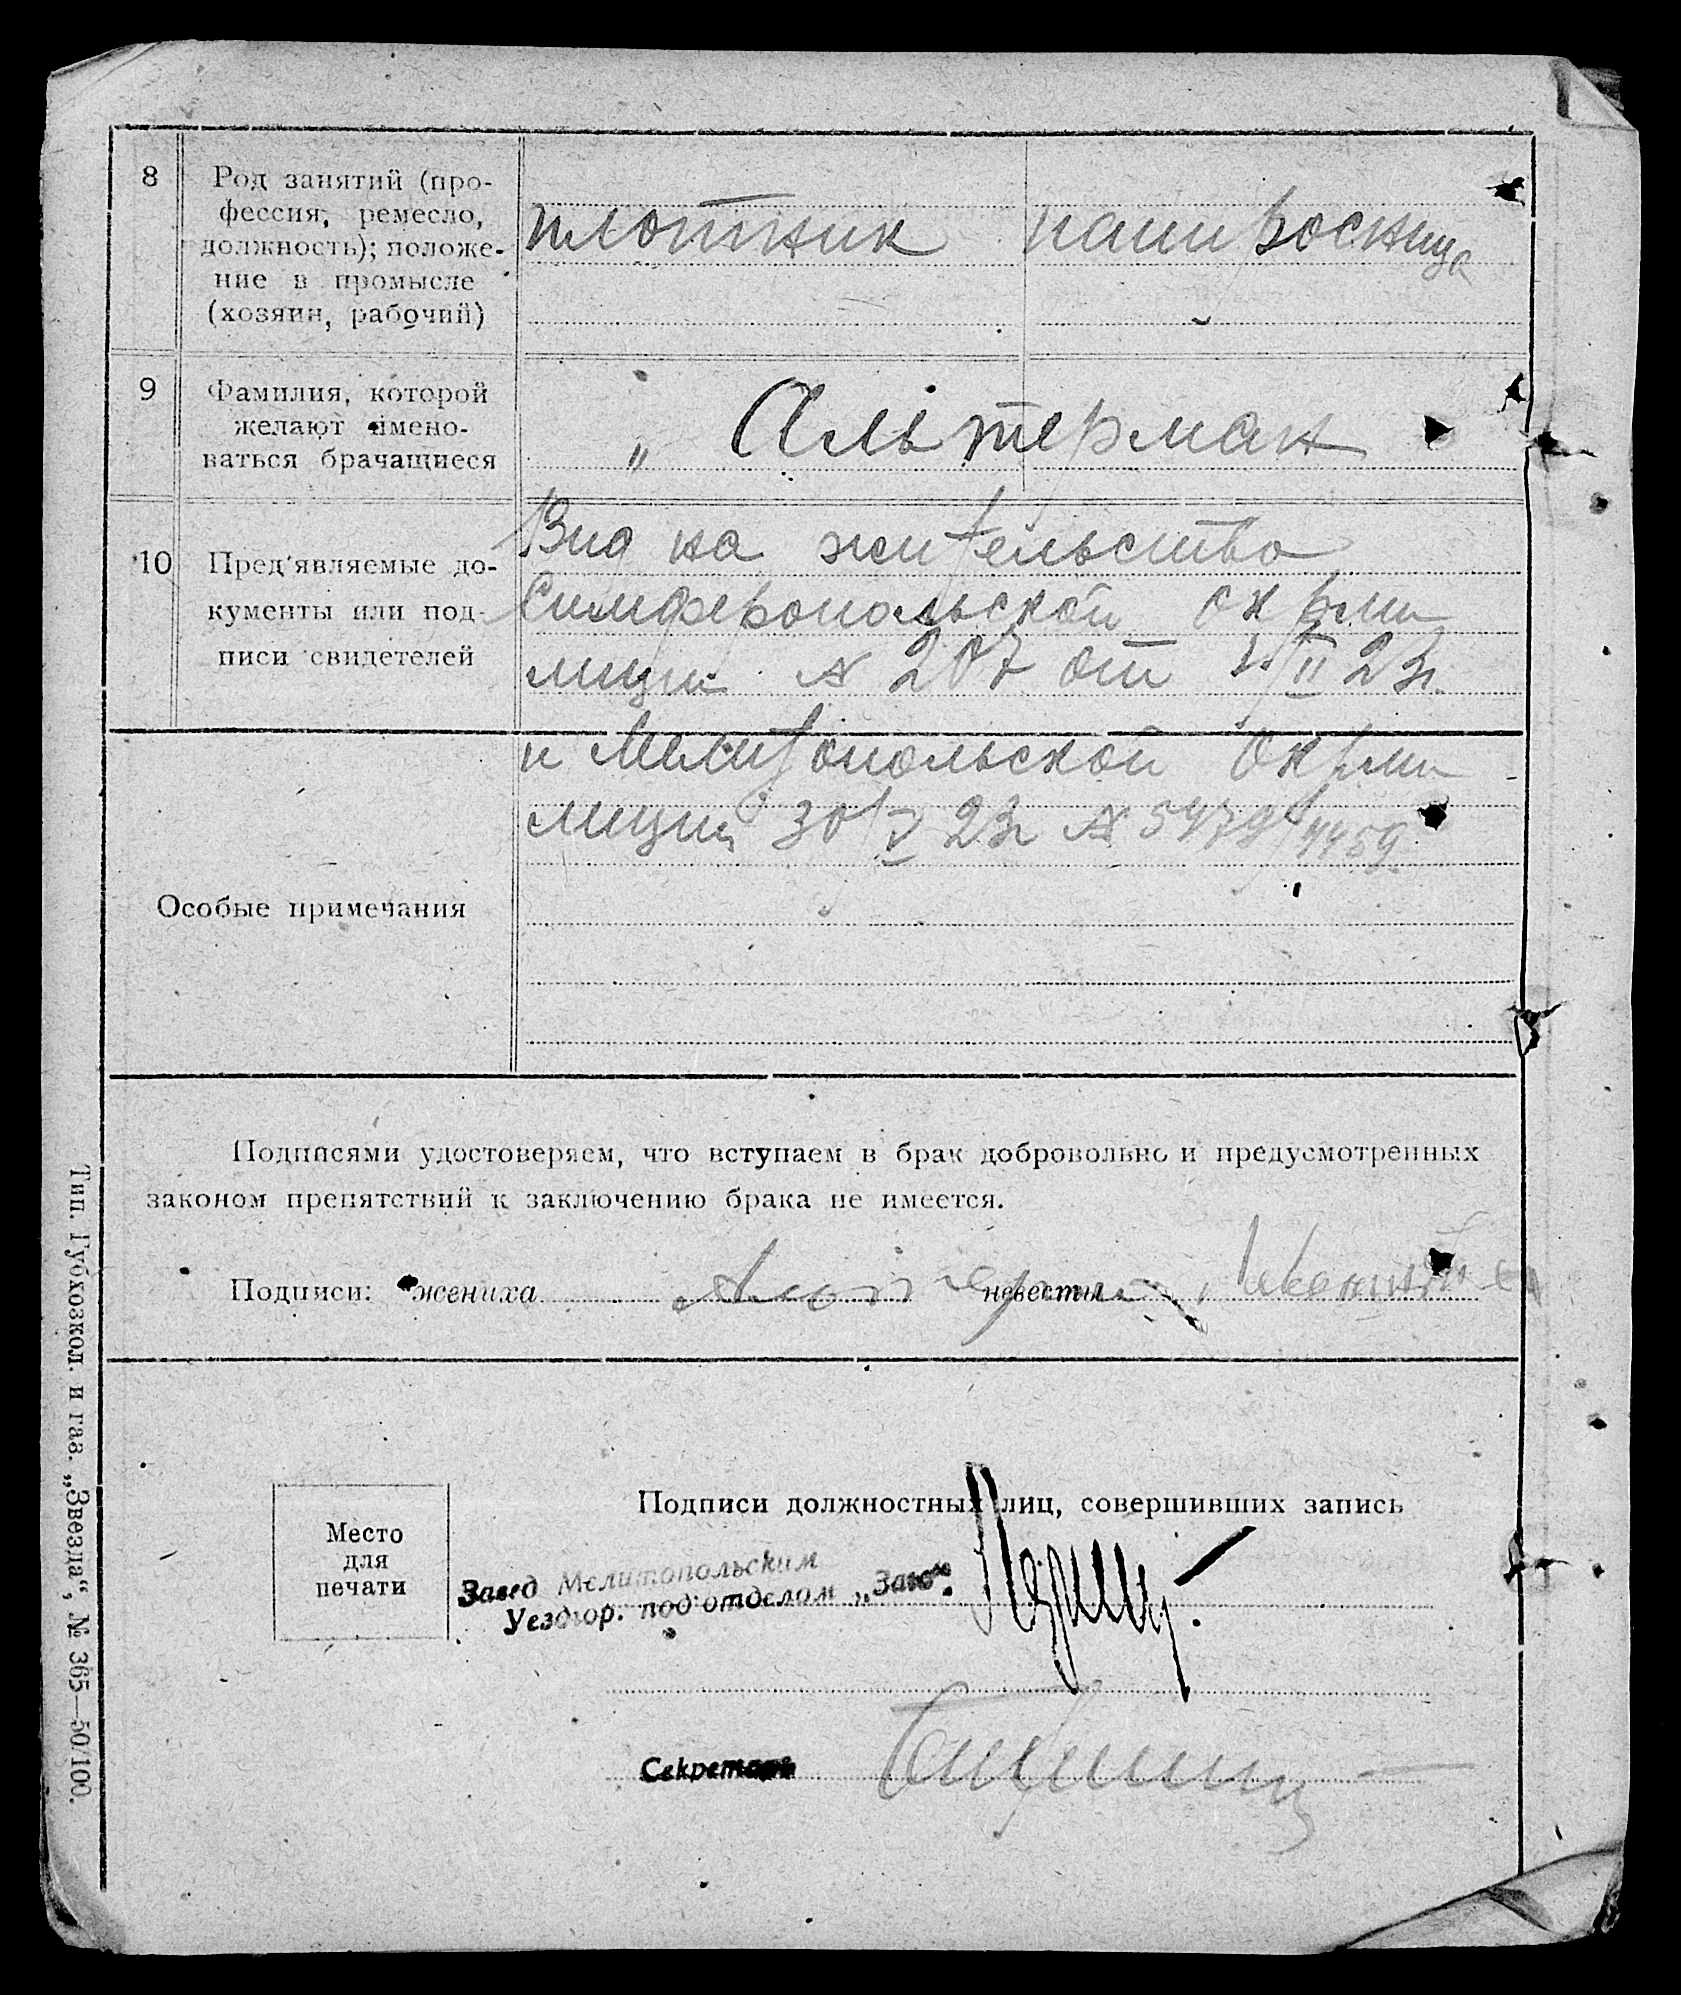 8
Род занятий (про-
фессия, ремесло,
должность); положе-
ние в промысле
(хозяин, рабочий)
плотник папиросница
9
Фамилия, которой
желают имено-
ваться брачащиеся
„ Альтерман
10
Пред'являемые до-
кументы или под-
писи свидетелей
Вид на жительство
Симферопольской окрми
лиции № 207 от /II 23г.
и Мелитопольской Окрми
лиции 30/V 23г № 5479/4459
Особые примечания
Подписями удостоверяем, что вступаем в брак добровольно и предусмотренных
законом препятствий к заключению брака не имеется.
Подписи: жениха Альтерман невесты
Подписи должностных лиц, совершивших запись
Место
для
печати
Завед Мелитопольским
Уездгор. под'отделом „Загс“.
Секретарь
Тип. Губхозкол. и газ. „Звезда“, № 365—50/100.